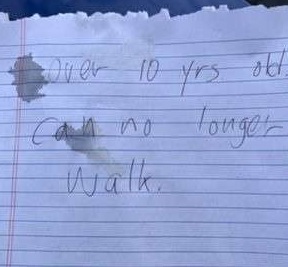 Over 10 yrs old.
can no longer
walk.